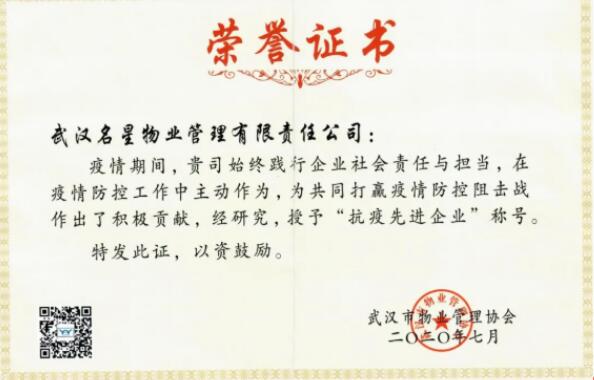 荣誉证书
武汉名星物业管理有限责任公司：
疫情期间，贵司始终践行企业社会责任与担当，在
疫情防控工作中主动作为，为共同打赢疫情防控阻击战
作出了积极贡献，经研究，授予“抗疫先进企业”称号。
特发此证，以资鼓励。
武汉市物业管理协会
二〇二〇年七月